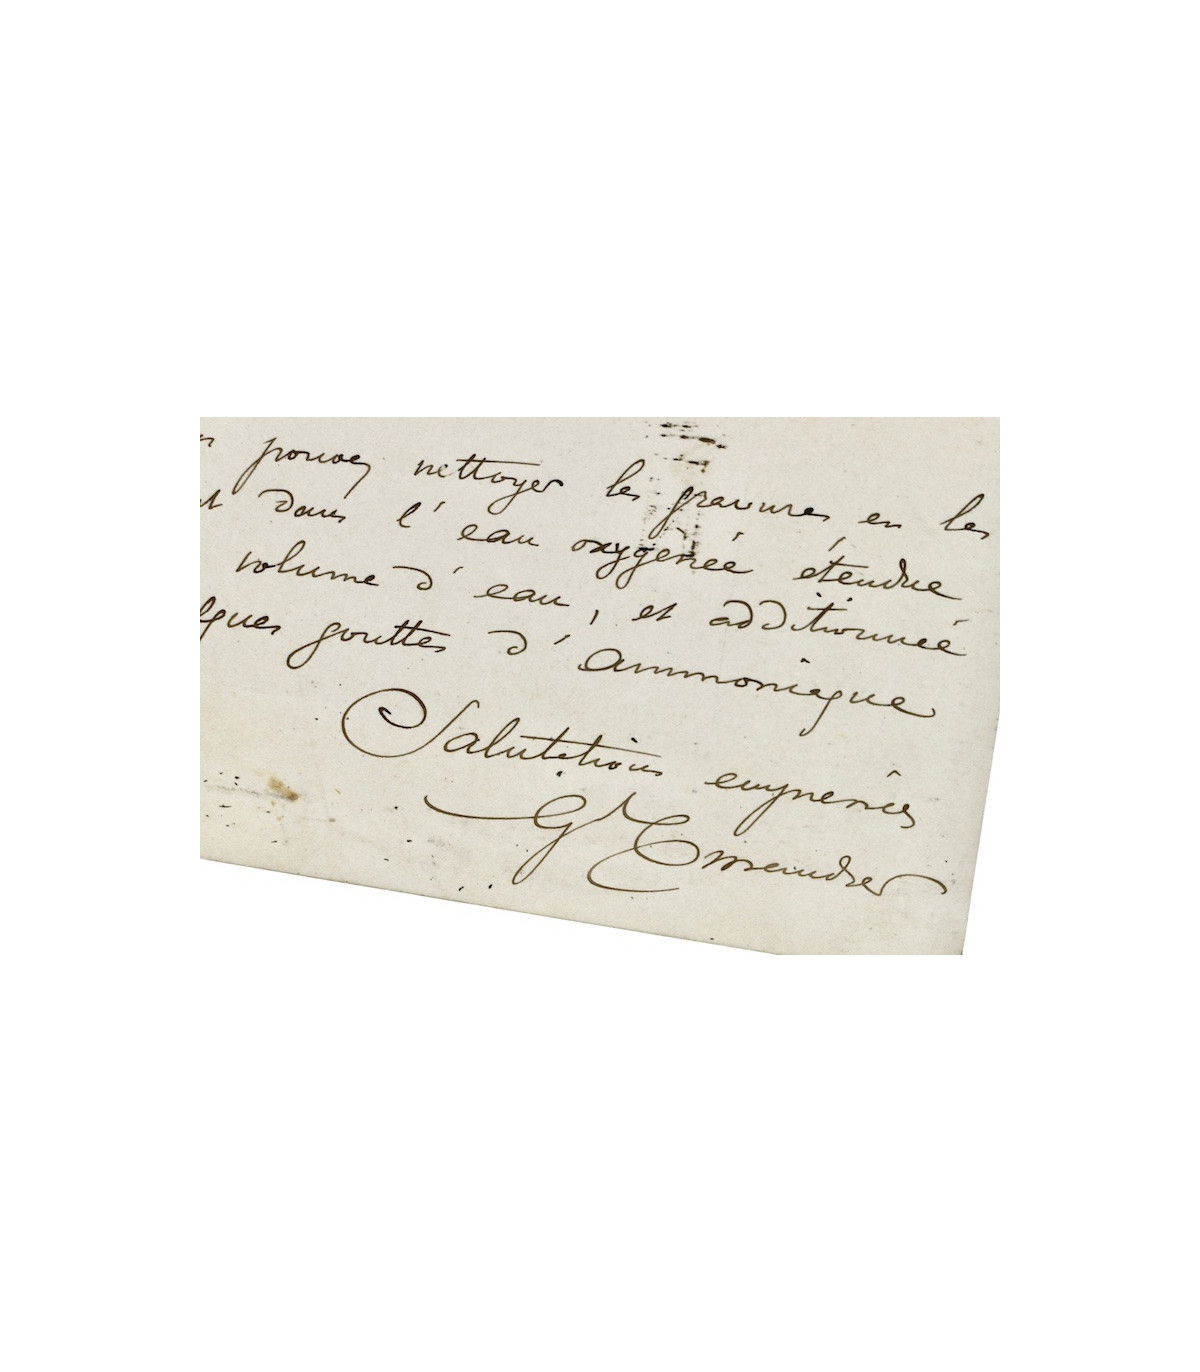 pouvez nettoyer les gravures en les
dans l'eau oxygenée étendue
volume d'eau, et additionnée
gouttes d'ammoniaque
Salutations empressées